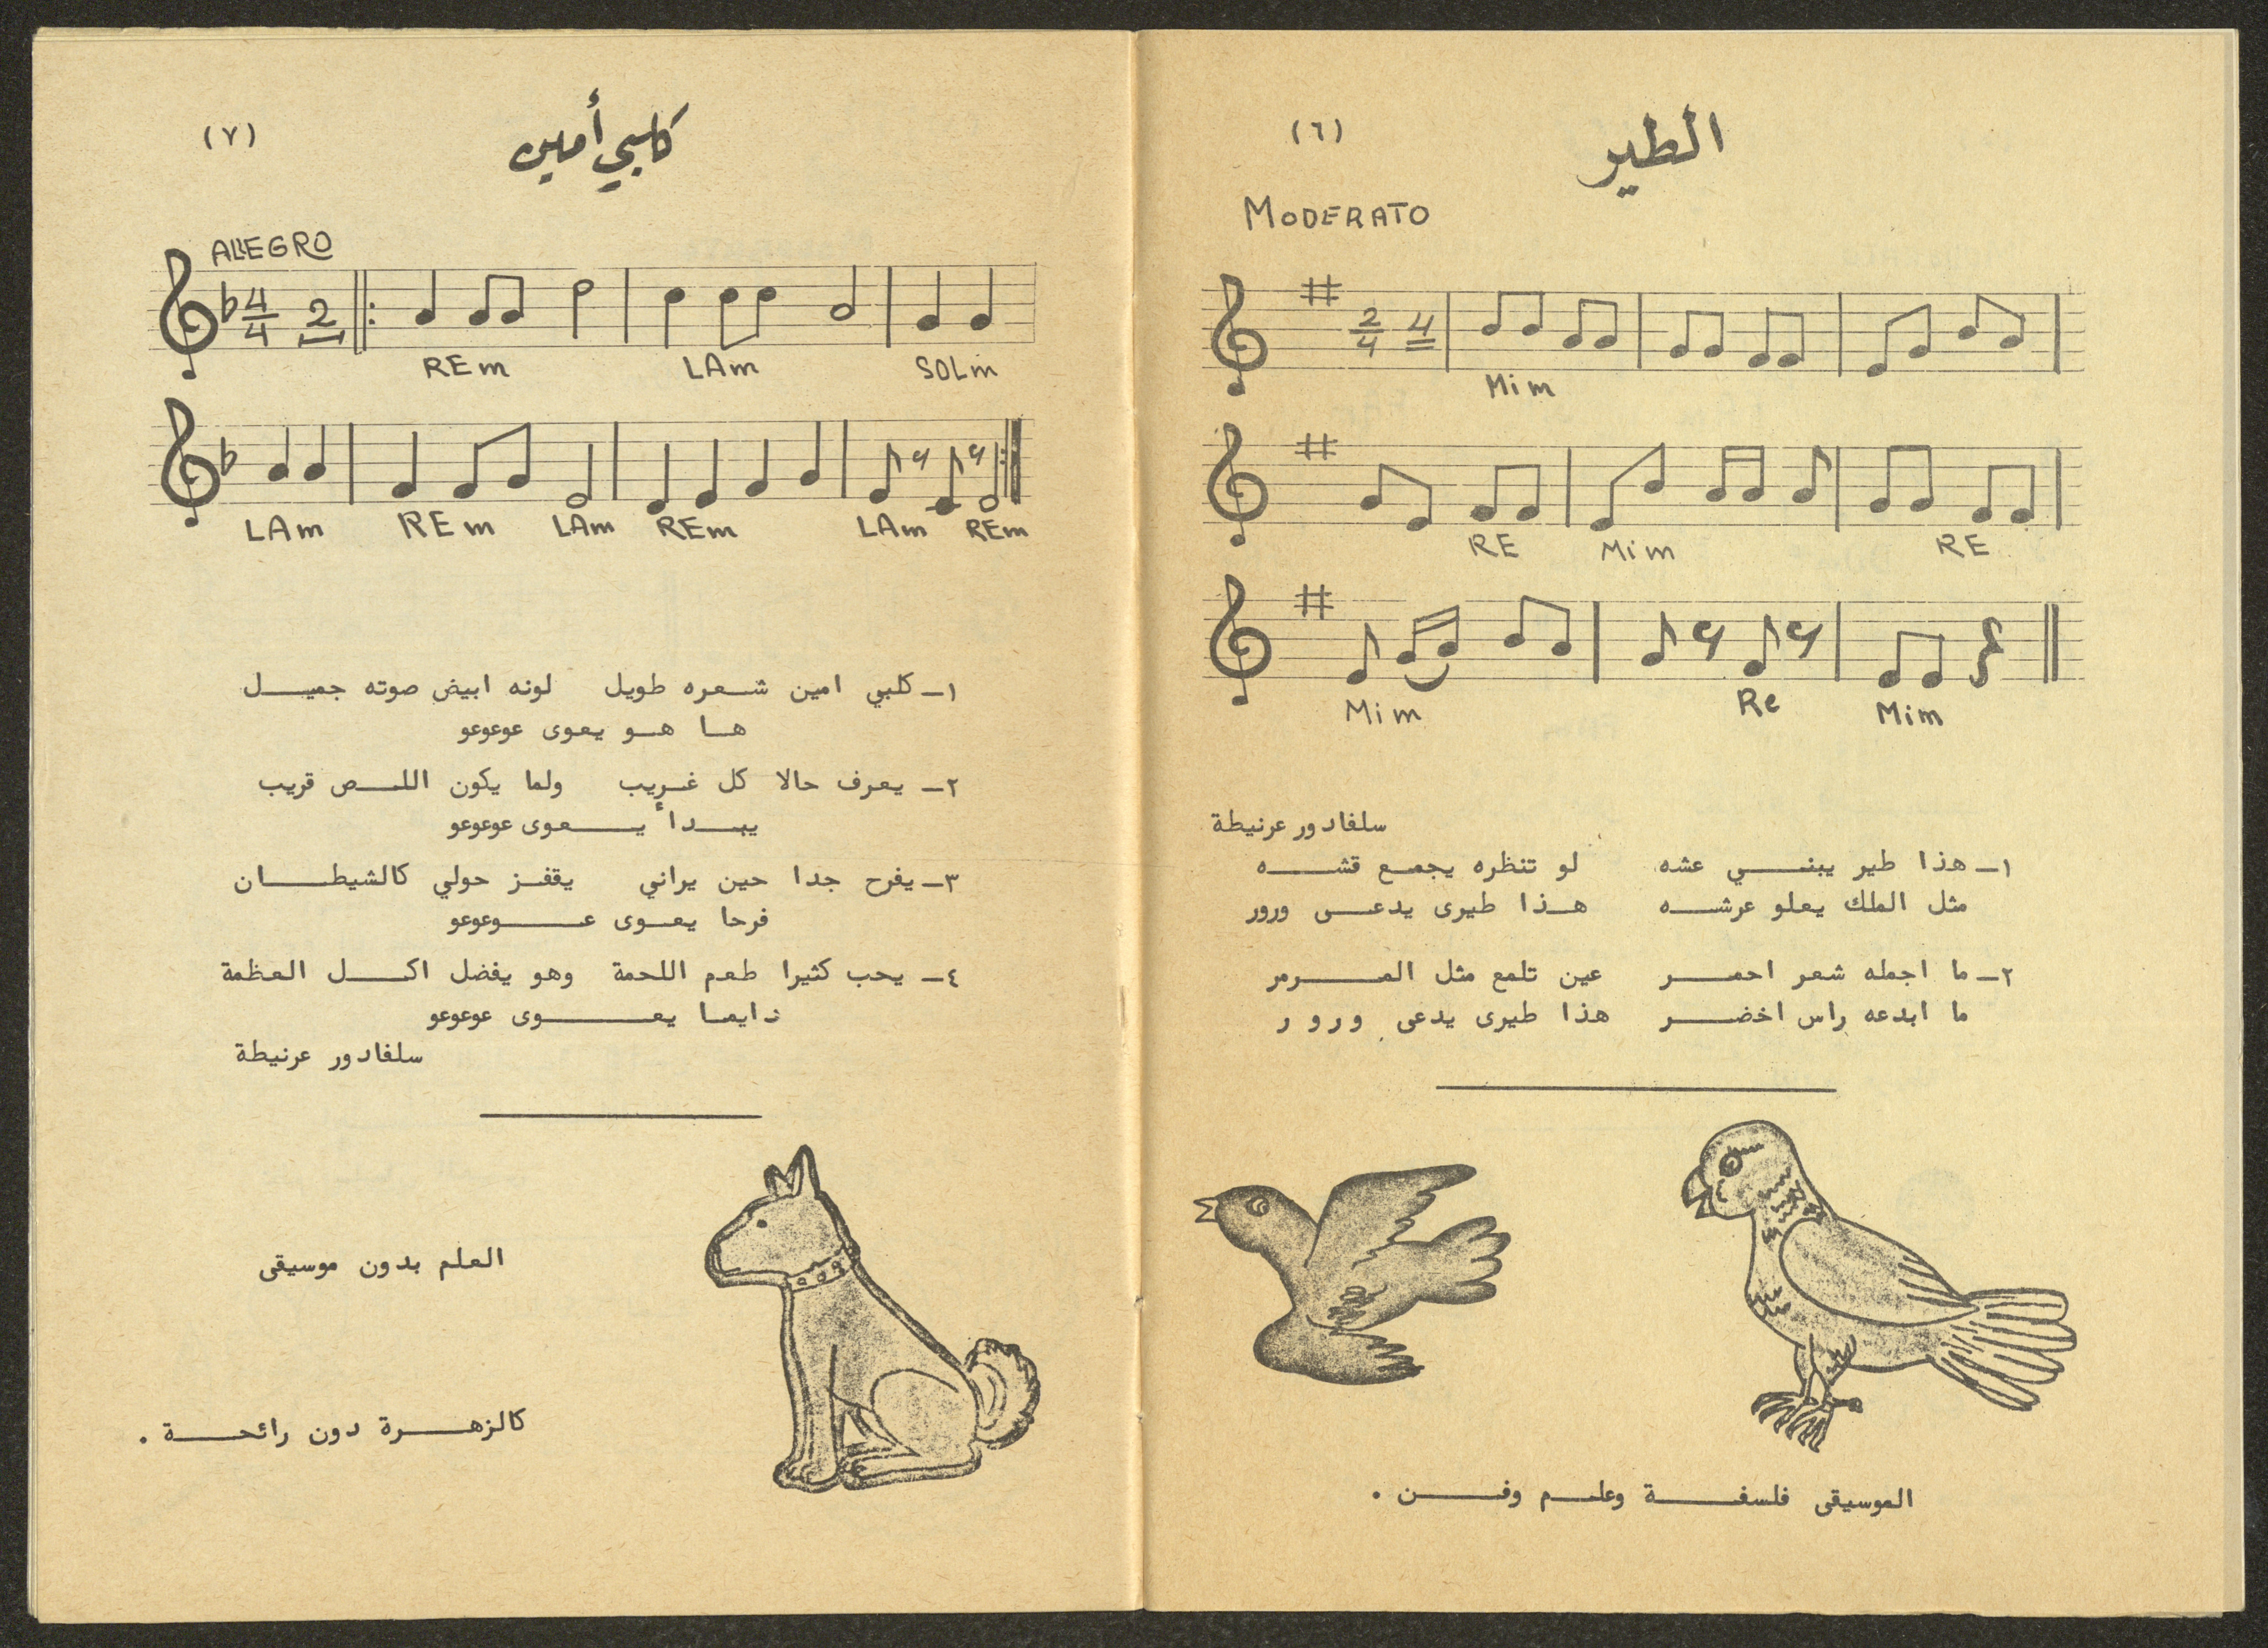 الطير
(٦)
MODERATO
2/4 4
Mi m
RE Mi m RE
Mi m Re Mi m
سلفادور عرنيطة
١ـ هذا طير يبنـــي عشه لو تنظره يجمع قشـــه
مثل الملك يعلو عرشـــه هـذا طيرى يدعـى ورور
٢ـ ما اجمله شعر احمـــر عين تلمع مثل المـــرمر
ما ابدعه راس اخضـــر هذا طيرى يدعى ورور
الموسيقى فلسفـــة وعلـم وفـــن .
كلبي أمين
(٧)
ALLEGRO
4/4 2
REm LAm SOLm
LAm REm LAm REm LAm REm
١ـ كلبي امين شـعره طويل لونه ابيض صوته جميـــل
هـا هـو يعوى عوعوعو
٢ـ يعرف حالا كل غـريب ولما يكون اللـــص قريب
يبـــدأ يـــعوى عوعوعو
٣ـ يفرح جدا حين يراني يقفـز حولي كالشيطـــان
فرحا يعـوى عـــوعوعو
٤ـ يحب كثيرا طعم اللحمة وهو يفضل اكـــل العظمة
دايمـا يعـــوى عوعوعو
سلفادور عرنيطة
العلم بدون موسيقى
كالزهـــرة دون رائحـــة .